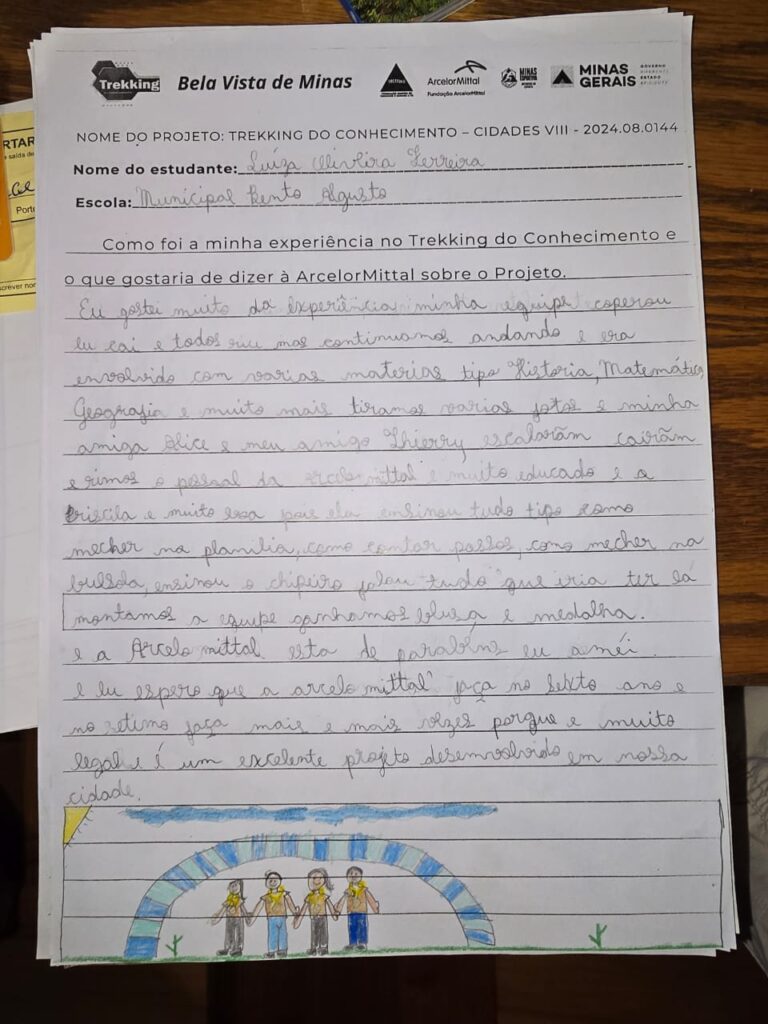 Trekking
Bela Vista de Minas
ArcelorMittal
Fundação ArcelorMittal
MINAS ESPORTIVA
MINAS GERAIS
GOVERNO DIFERENTE. ESTADO EFICIENTE.
NOME DO PROJETO: TREKKING DO CONHECIMENTO – CIDADES VIII - 2024.08.0144
Nome do estudante: Luíza Oliveira Ferreira
Escola: Municipal Bento Algusto
Como foi a minha experiência no Trekking do Conhecimento e
o que gostaria de dizer à ArcelorMittal sobre o Projeto.
Eu gostei muito da experiência minha equipe coperou
eu cai e todos riu mas continuamos andando e era
envolvido com varias materias tipo Historia, Matemática,
Geografia e muito mais tiramos varias fotos e minha
amiga Alice e meu amigo Thierry escalarãm cairãm
e rimos o pessoal da arcelo mittal e muito educado e a
Priscila e muito boa pois ela ensinou tudo tipo como
mecher na planilia, como contar passos, como mecher na
bulsola, ensinou o chipeiro falou tudo que iria ter lá
montamos a equipe ganhamos blusa e medalha.
e a Arcelo mittal esta de parabéns eu améi.
e eu espero que a arcelo mittal faça no sexto ano e
no setimo faça mais e mais vezes porque e muito
legal e é um excelente projeto desemvolvido em nossa
cidade.
RTAR
saída de
Porte
screver nor